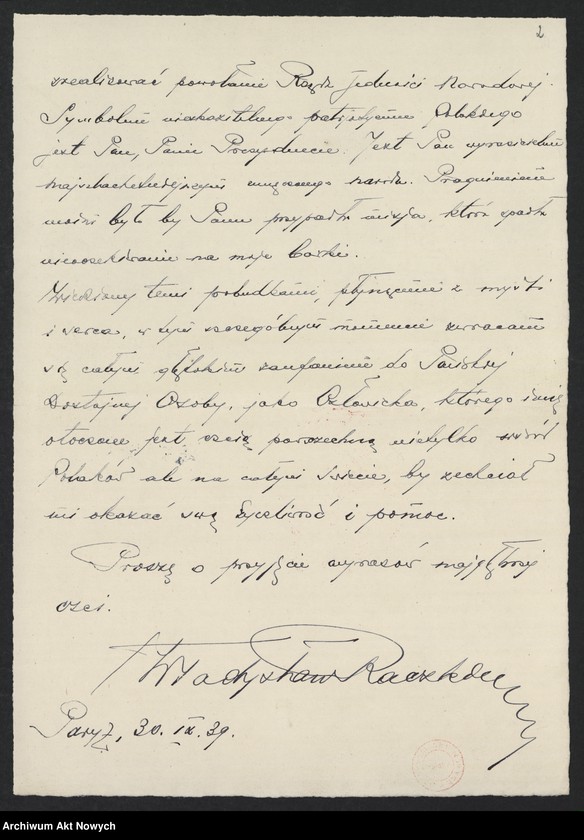 2
zrealizować powołanie Rządu Jedności Narodowej.
Symbolem nieskazitelnego patrjotyzmu Polskiego
jest Pan, Panie Prezydencie. Jest Pan wyrazicielem
najszlachetniejszym umęczonego narodu. Pragnieniem
moim było by Panu przypadła misja, która spadła
nieoczekiwanie na moje barki.
Wiedziony temi pobudkami, płynącemi z myśli
i serca, w tym szczególnym momencie zwracam
się całym głębokim zaufaniem do Pańskiej
Dostojnej Osoby, jako Człowieka, którego imię
otoczone jest czcią powszechną nietylko wśród
Polaków ale na całym świecie, by zechciał
mi okazać swą życzliwość i pomoc.
Proszę o przyjęcie wyrazów najgłębszej
czci.
Władysław Raczkiewicz
Paryż, 30. IX. 39.
Archiwum Akt Nowych